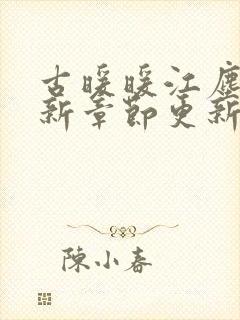 古暖暖江塵
新章節更新
陳小春